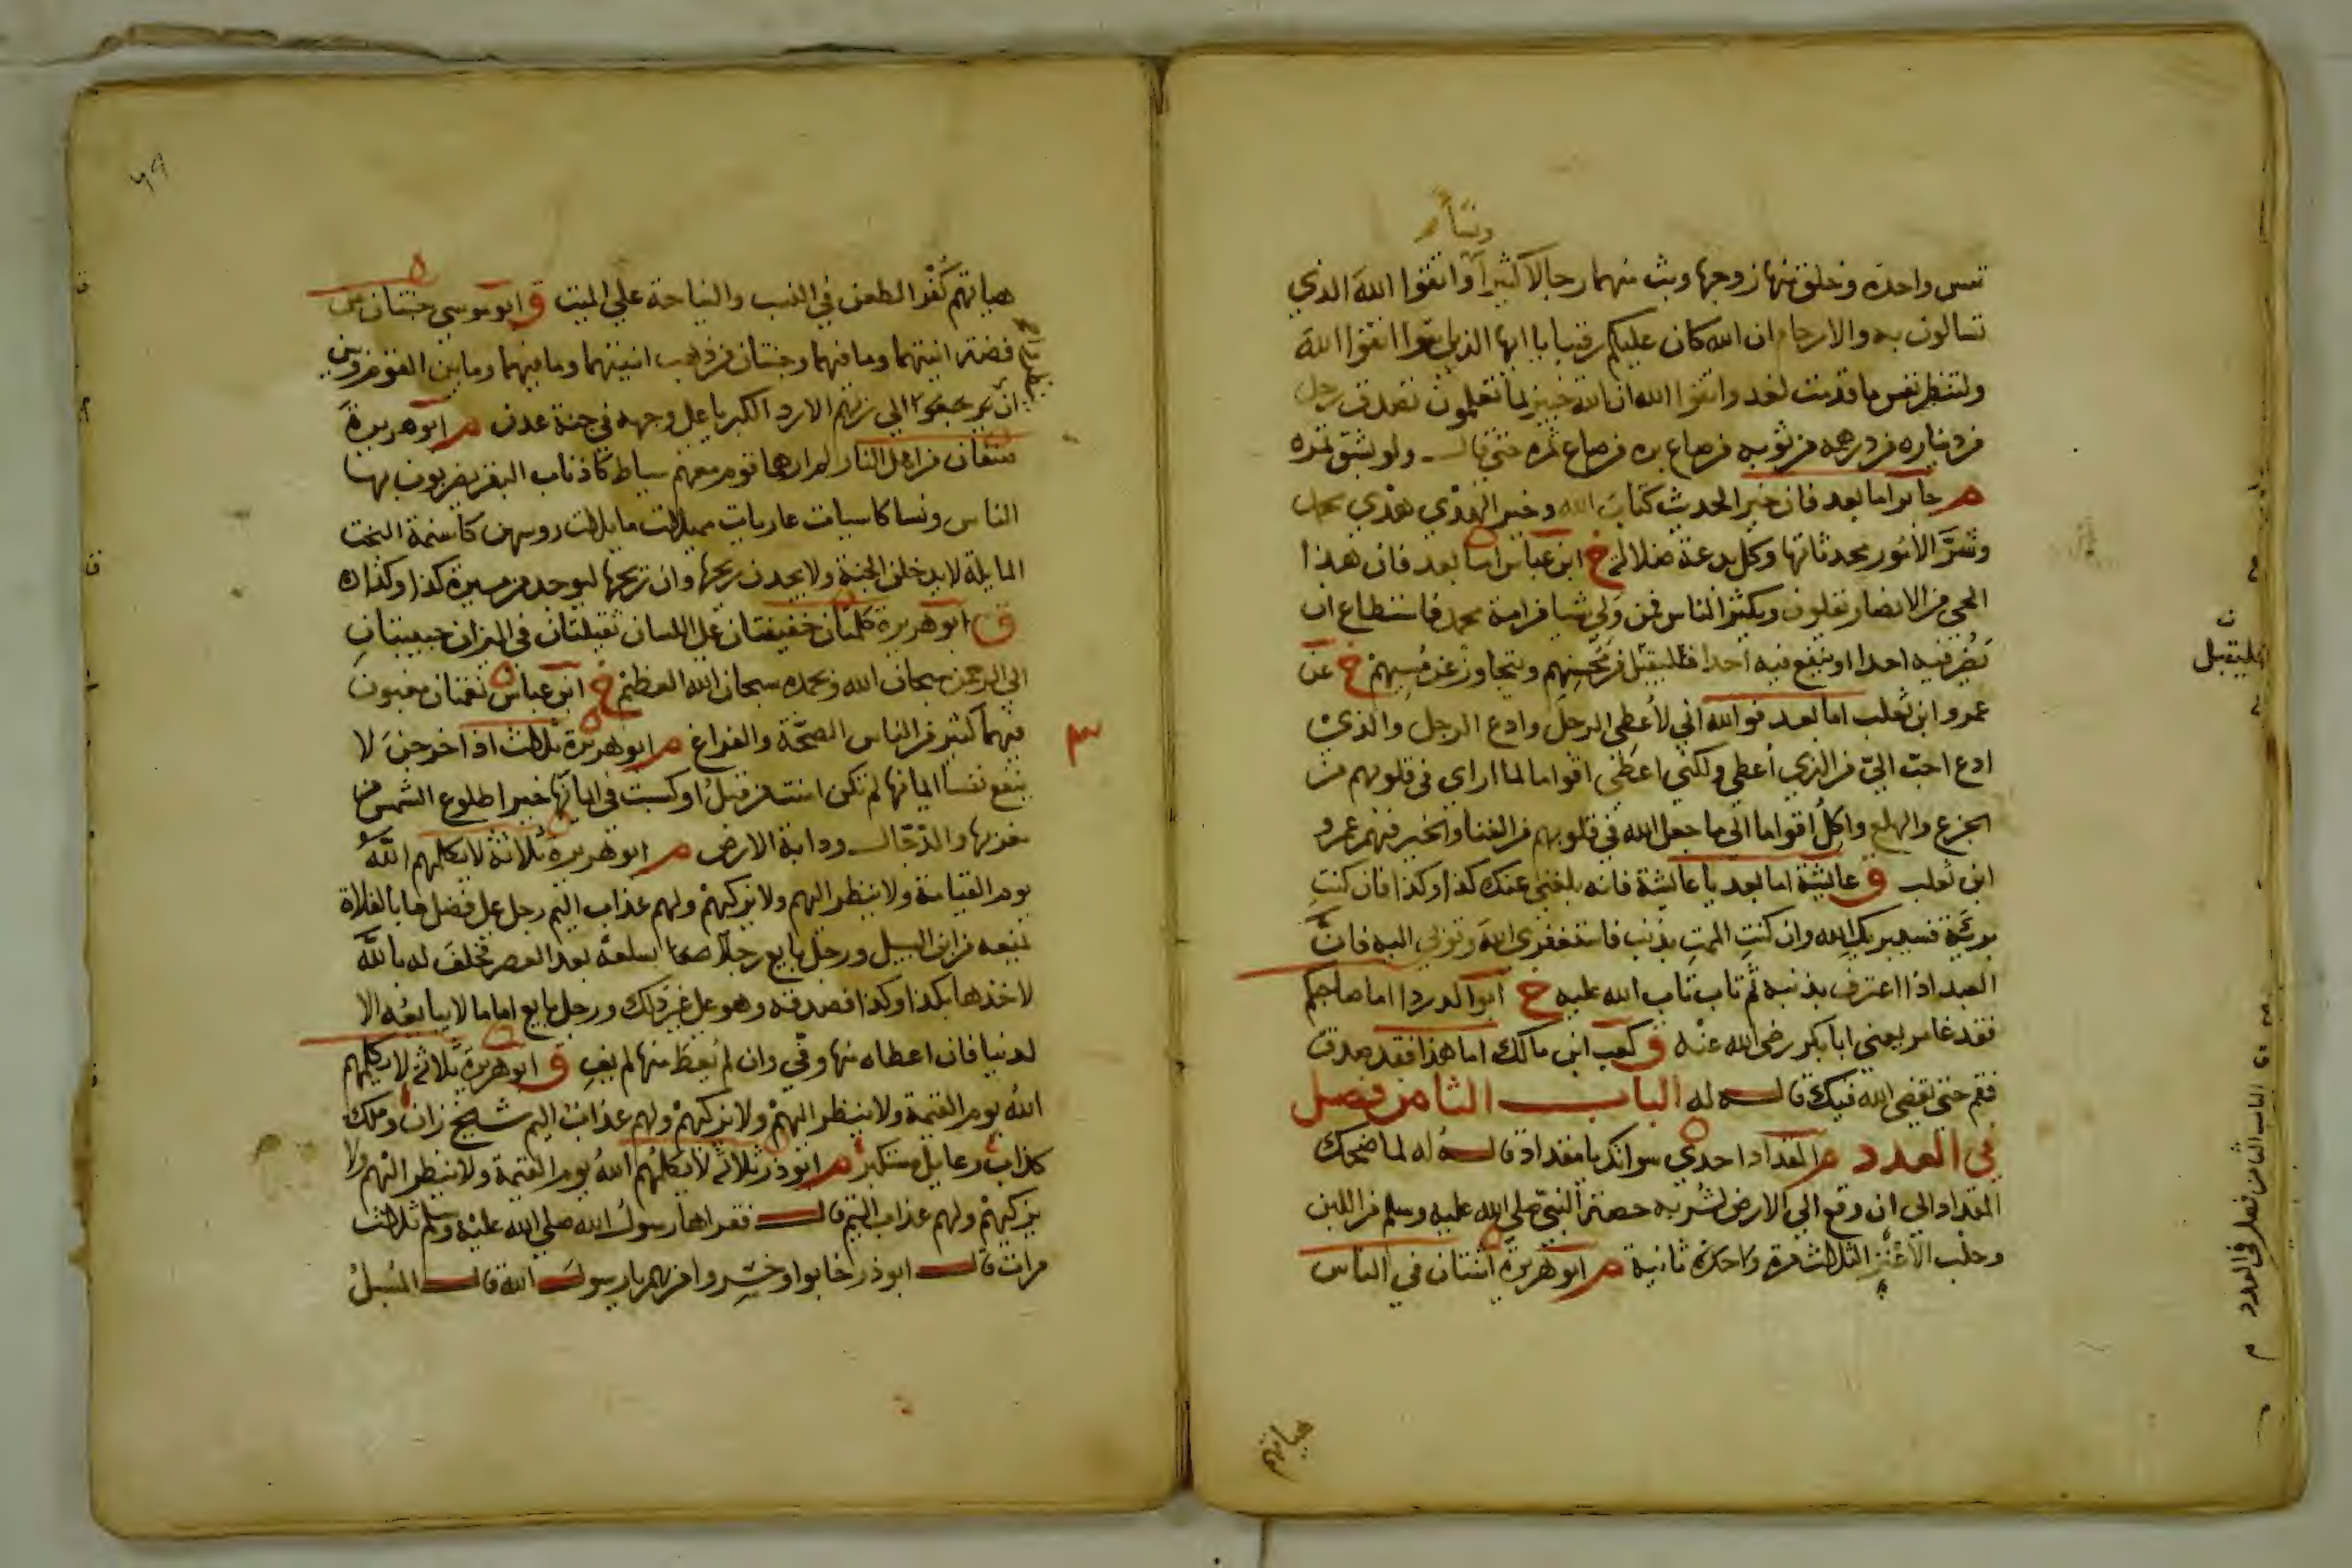 ونسآء
نفس واحدة وخلق منها زوجها وبث منهما رجالا كثيرا واتقوا الله الذي
تسالون به والارحام ان الله كان عليكم رقيبا يا ايها الذين امنوا اتقوا الله
ولتنظر نفس ما قدمت لغد واتقوا الله ان الله خبير بما تعملون تصدق رجل
من ديناره من درهمه من ثوبه من صاع بره من صاع تمره حتى قال ولو بشق تمرة
م جابر اما بعد فان خير الحديث كتاب الله وخير الهدي هدي محمد
وشر الأمور محدثاتها وكل بدعة ضلالة خ ابن عباس اما بعد فان هذا
الحي من الانصار يقلون ويكثر الناس فمن ولي شيا من امة محمد فاستطاع ان
يضر فيه احدا او ينفع فيه احدا فليقبل من محسنهم ويتجاوز عن مسيهم خ عن
عمرو ابن تغلب اما بعد فوالله اني لأعطي الرجل وادع الرجل والذي
ادع احب الي من الذي أعطي ولكني اعطي اقواما لما ارى في قلوبهم من
الجزع والهلع واكل أقواما الى ما جعل الله في قلوبهم من الغنا والخير فيهم عمرو
ابن تغلب ق عايشة اما بعد يا عائشة فانه بلغني عنك كذا وكذا فان كنت
بريئة فسيبريك الله وان كنت الممت بذنب فاستغفري الله وتوبي اليه فان
العبد اذا اعترف بذنبه ثم تاب تاب الله عليه خ ابو الدردا اما صاحبكم
فقد غامر يعني ابا بكر رضي الله عنه ق كعب ابن مالك اما هذا فقد صدق
فقم حتى يقضي الله فيك قاله له الباب الثامن فصل
في العدد م المقداد احدي سواتك يا مقداد قاله له لما ضحك
المقداد الى ان وقع الى الارض لشربه حصة النبي صلى الله عليه وسلم من اللبن
وحلب الأعنز الثلاث مرة واحدة ثانية م ابو هريرة اثنتان في الناس
هما بهم
فليقبل
الباب الثامن فصل في العدد
هما بهم كفر الطعن في النسب والنياحة على الميت ق ابو موسى جنتان من
فضة انيتهما وما فيهما وجنتان من ذهب انيتهما وما فيهما وما بين القوم وبين
ان ينظروا الى ربهم الا ردا الكبريا على وجهه في جنة عدن م ابو هريرة
صنفان من اهل النار لم ارهما قوم معهم سياط كاذناب البقر يضربون بها
الناس ونسا كاسيات عاريات مميلات مايلات روسهن كاسنمة البخت
المايلة لا يدخلن الجنة ولا يجدن ريحها وان ريحها ليوجد من مسيرة كذا وكذا
ق ابو هريرة كلمتان خفيفتان على اللسان ثقيلتان في الميزان حبيبتان
الى الرحمن سبحان الله وبحمده سبحان الله العظيم خ ابن عباس نعمتان مغبون
فيهما كثير من الناس الصحة والفراغ م ابو هريرة ثلاث اذا خرجن لا
ينفع نفسا ايمانها لم تكن امنت من قبل او كسبت في ايمانها خيرا طلوع الشمس من
مغربها والدجال ودابة الارض م ابو هريرة ثلاثة لا يكلمهم الله
يوم القيامة ولا ينظر اليهم ولا يزكيهم ولهم عذاب اليم رجل على فضل ما بالفلاة
يمنعه من ابن السبيل ورجل بايع رجلا بسلعة بعد العصر فحلف له بالله
لاخذها بكذا وكذا فصدقه وهو على غير ذلك ورجل بايع اماما لا يبايعه الا
لدنيا فان اعطاه منها وفى وان لم يعط منها لم يف ق ابو هريرة ثلاثة لا يكلمهم
الله يوم القيمة ولا ينظر اليهم ولا يزكيهم ولهم عذاب اليم شيخ زان وملك
كذاب وعايل مستكبر م ابو ذر ثلاثة لا يكلمهم الله يوم القيمة ولا ينظر اليهم ولا
يزكيهم ولهم عذاب اليم قال فقراها رسول الله صلى الله عليه وسلم ثلاث
مرات قال ابو ذر خابوا وخسروا من هم يا رسول الله قال المسبل